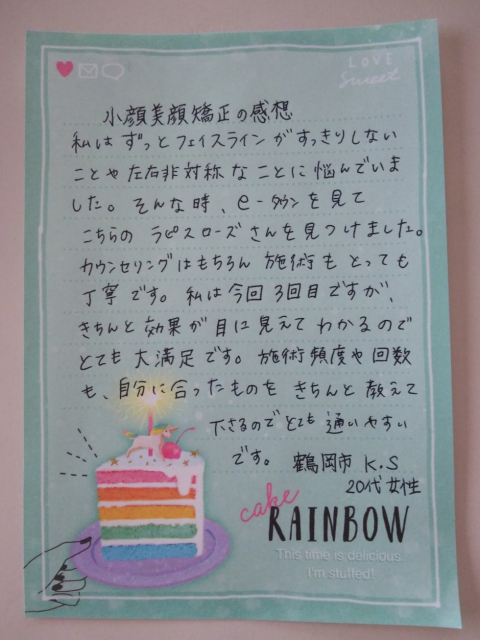 LOVE
Sweet
小顔美顔矯正の感想
私はずっとフェイスラインがすっきりしない
ことや左右非対称なことに悩んでいま
した。そんな時、e-タウンを見て
こちらの ラピスローズさんを見つけました。
カウンセリングはもちろん 施術も とっても
丁寧です。私は今回3回目ですが、
きちんと効果が目に見えてわかるので
とても大満足です。施術頻度や回数
も、自分に合ったものを きちんと教えて
下さるのでとても通いやすい
です。 鶴岡市 K.S
20代女性
cake
RAINBOW
This time is delicious.
I'm stuffed!